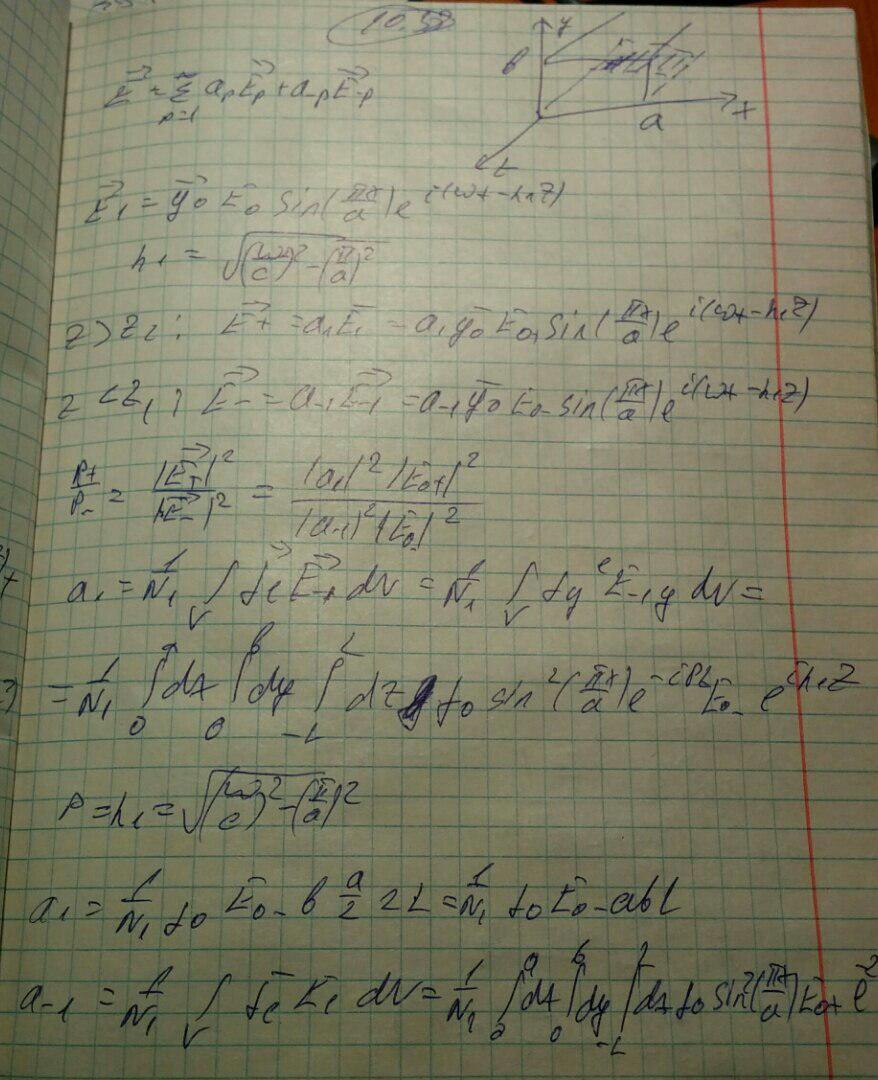 10.52
y
b
a
x
z
E⃗ = Σ_{p=1}^{∞} a_p E⃗_p + a_{-p} E⃗_{-p}
E⃗_1 = y⃗_0 E_0 sin(πx/a) e^{i(ωt - h_1 z)}
h_1 = √((ω/c)^2 - (π/a)^2)
z > z_2 : E⃗_+ = a_1 E⃗_1 = a_1 y⃗_0 E_{0+} sin(πx/a) e^{i(ωt - h_1 z)}
z < z_1 : E⃗_- = a_{-1} E⃗_{-1} = a_{-1} y⃗_0 E_{0-} sin(πx/a) e^{i(ωt - h_1 z)}
P_+/P_- = |E⃗_+|^2 / |E⃗_-|^2 = |a_1|^2 |E_{0+}|^2 / |a_{-1}|^2 |E_{0-}|^2
a_1 = 1/N_1 ∫_V j⃗^e E⃗_{-1} dV = 1/N_1 ∫_V j_y^e E_{-1y} dV =
= 1/N_1 ∫_0^a dx ∫_0^b dy ∫_{-L}^L dz j_0 sin^2(πx/a) e^{-ipz} E_{0-} e^{ih_1 z}
p = h_1 = √((ω/c)^2 - (π/a)^2)
a_1 = 1/N_1 j_0 E_{0-} b a/2 2L = 1/N_1 j_0 E_{0-} abL
a_{-1} = 1/N_1 ∫_V j^e E_1 dV = 1/N_1 ∫_0^a dx ∫_0^b dy ∫_{-L}^L dz j_0 sin^2(πx/a) E_{0+} e^{2